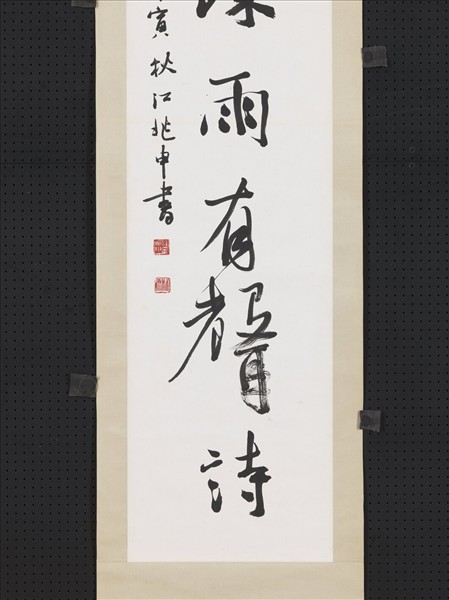 雨有聲詩
寅秋江兆申書